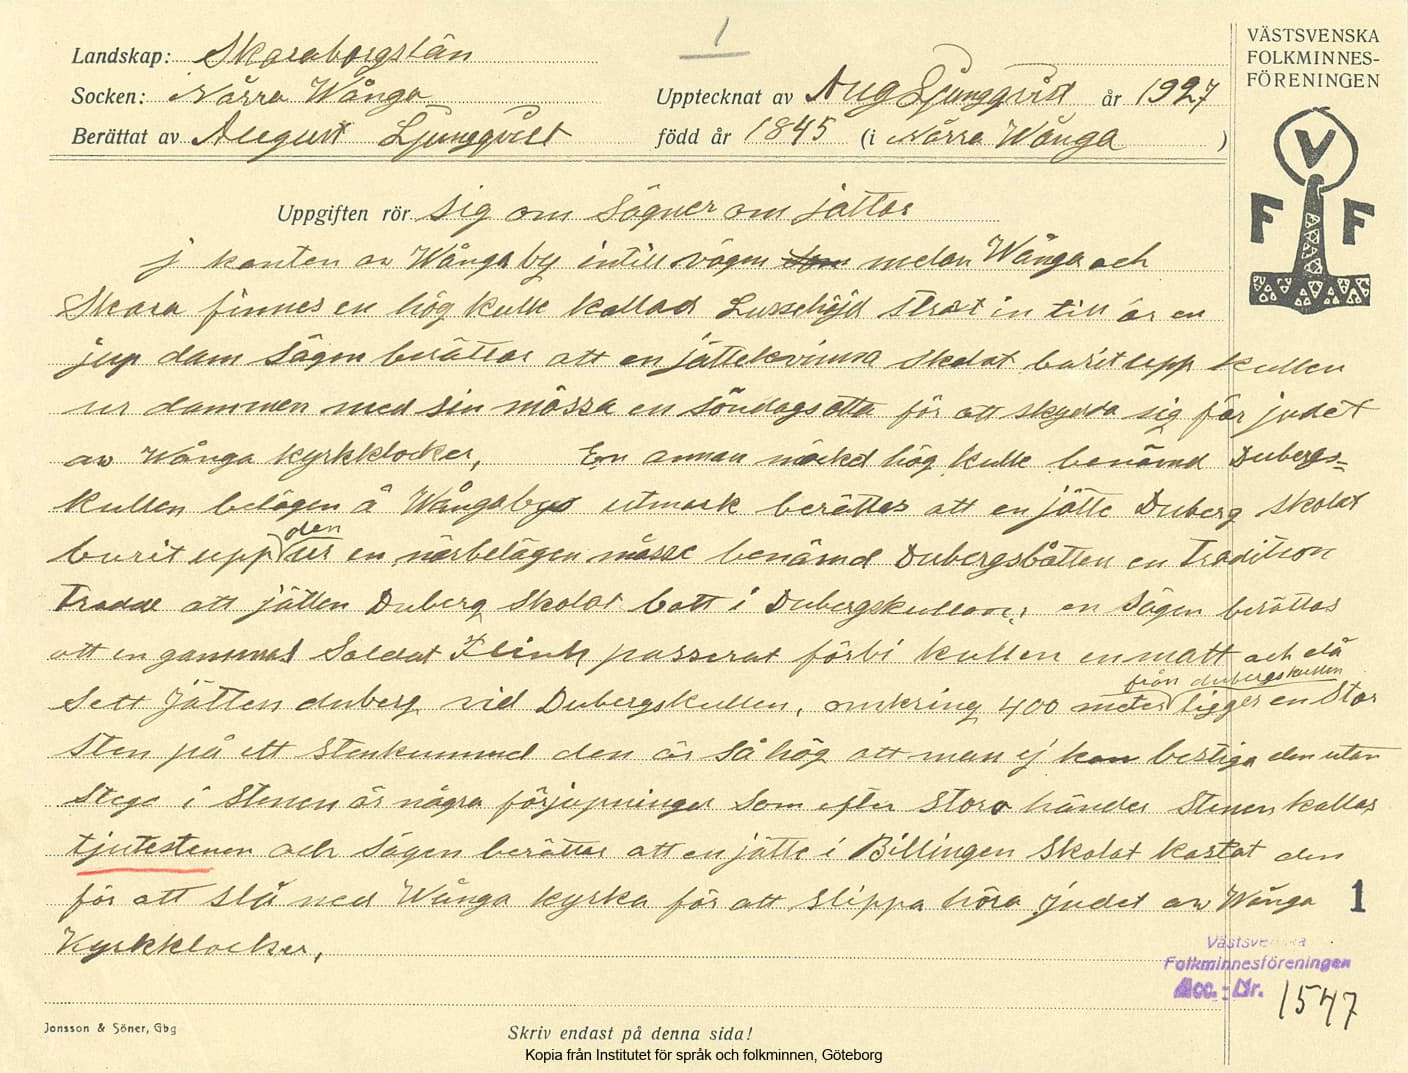 1
Landskap: Skaraborgslän
Socken: Nårra Wånga
Berättat av August Ljungqvist
Upptecknat av Aug Ljungqvist år 1927
född år 1845 (i Nårra Wånga )
VÄSTSVENSKA
FOLKMINNES-
FÖRENINGEN
V
F F
Uppgiften rör sig om sägner om jättar
j kanten av Wånga by intill vägen som melan Wånga och
Skara finnes en hög kulle kallad Lussehöjd strax in till är en
jup dam sägen berättar att en jättekvinna skolat burit upp kullen
ur dammen med sin mössa en söndagsotta för att skydda sig för judet
av Wånga kyrkklocker, En annan märkd hög kulle benämd Dubergs=
kullen belägen å Wångabys utmark berättes att en jätte Duberg skolat
burit upp den ur en närbelägen måsse benämd Dubergsbåtten en Tradition
Trodde att jätten Duberg skolat bott i Dubergskullen, en sägen berättas
att en gammal Soldat Flink passerat förbi kullen en natt och då
sett jätten duberg vid Dubergskullen, omkring 400 meter från dubergskullen ligger en stor
sten på ett stenkummel den är så hög att man ej kan bestiga den utan
stege i stenen är några förjupninger som efter stora händer stenen kallas
tjutestenen och sägen berättar att en jätte i Billingen skolat kastat den
för att slå ned Wånga kyrka för att slippa höra judet av Wånga
Kyrkklocker,
1
Västsvenska
Folkminnesföreningen
Acc.-Nr. 1547
Jonsson & Söner, Gbg
Skriv endast på denna sida!
Kopia från Institutet för språk och folkminnen, Göteborg